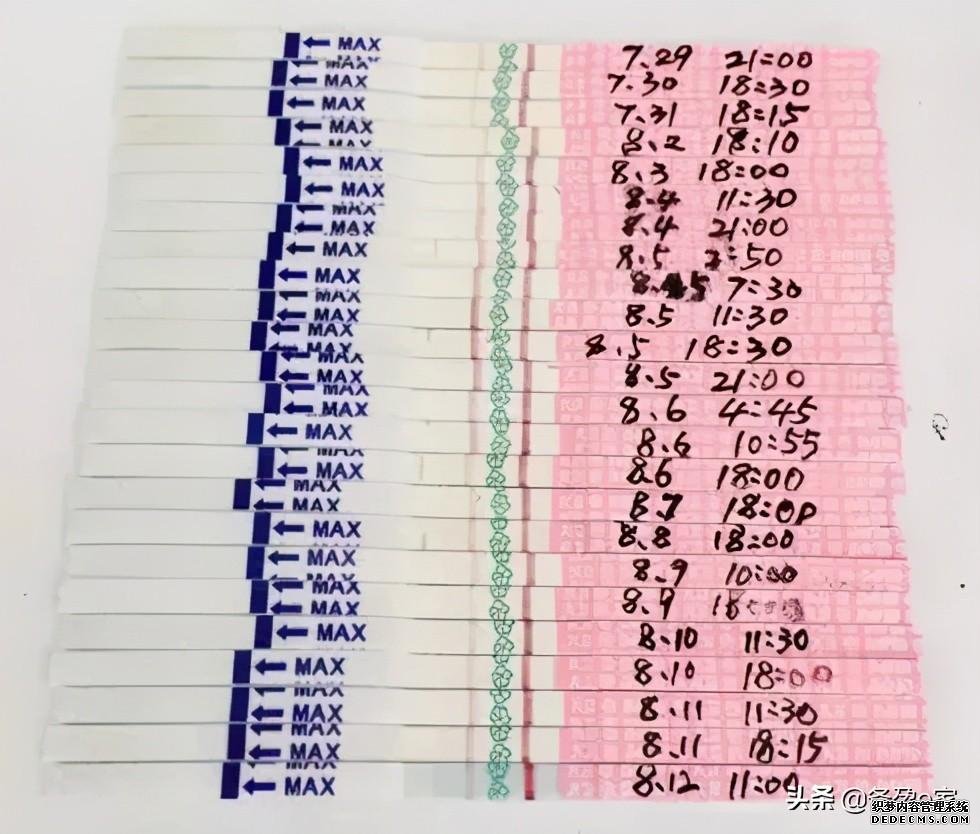 ← MAX 7.29 21:00
← MAX 7.30 18:30
← MAX 7.31 18:15
← MAX 8.2 18:10
← MAX 8.3 18:00
← MAX 8.4 11:30
← MAX 8.4 21:00
← MAX 8.5 2:50
← MAX 8.5 7:30
← MAX 8.5 11:30
← MAX 8.5 18:30
← MAX 8.5 21:00
← MAX 8.6 4:45
← MAX 8.6 10:55
← MAX 8.6 18:00
← MAX 8.7 18:00
← MAX 8.8 18:00
← MAX 8.9 10:00
← MAX 8.9
← MAX 8.10 11:30
← MAX 8.10 18:00
← MAX 8.11 11:30
← MAX 8.11 18:15
← MAX 8.12 11:00
头条 @备孕e家
织梦内容管理系统
DEDECMS.COM